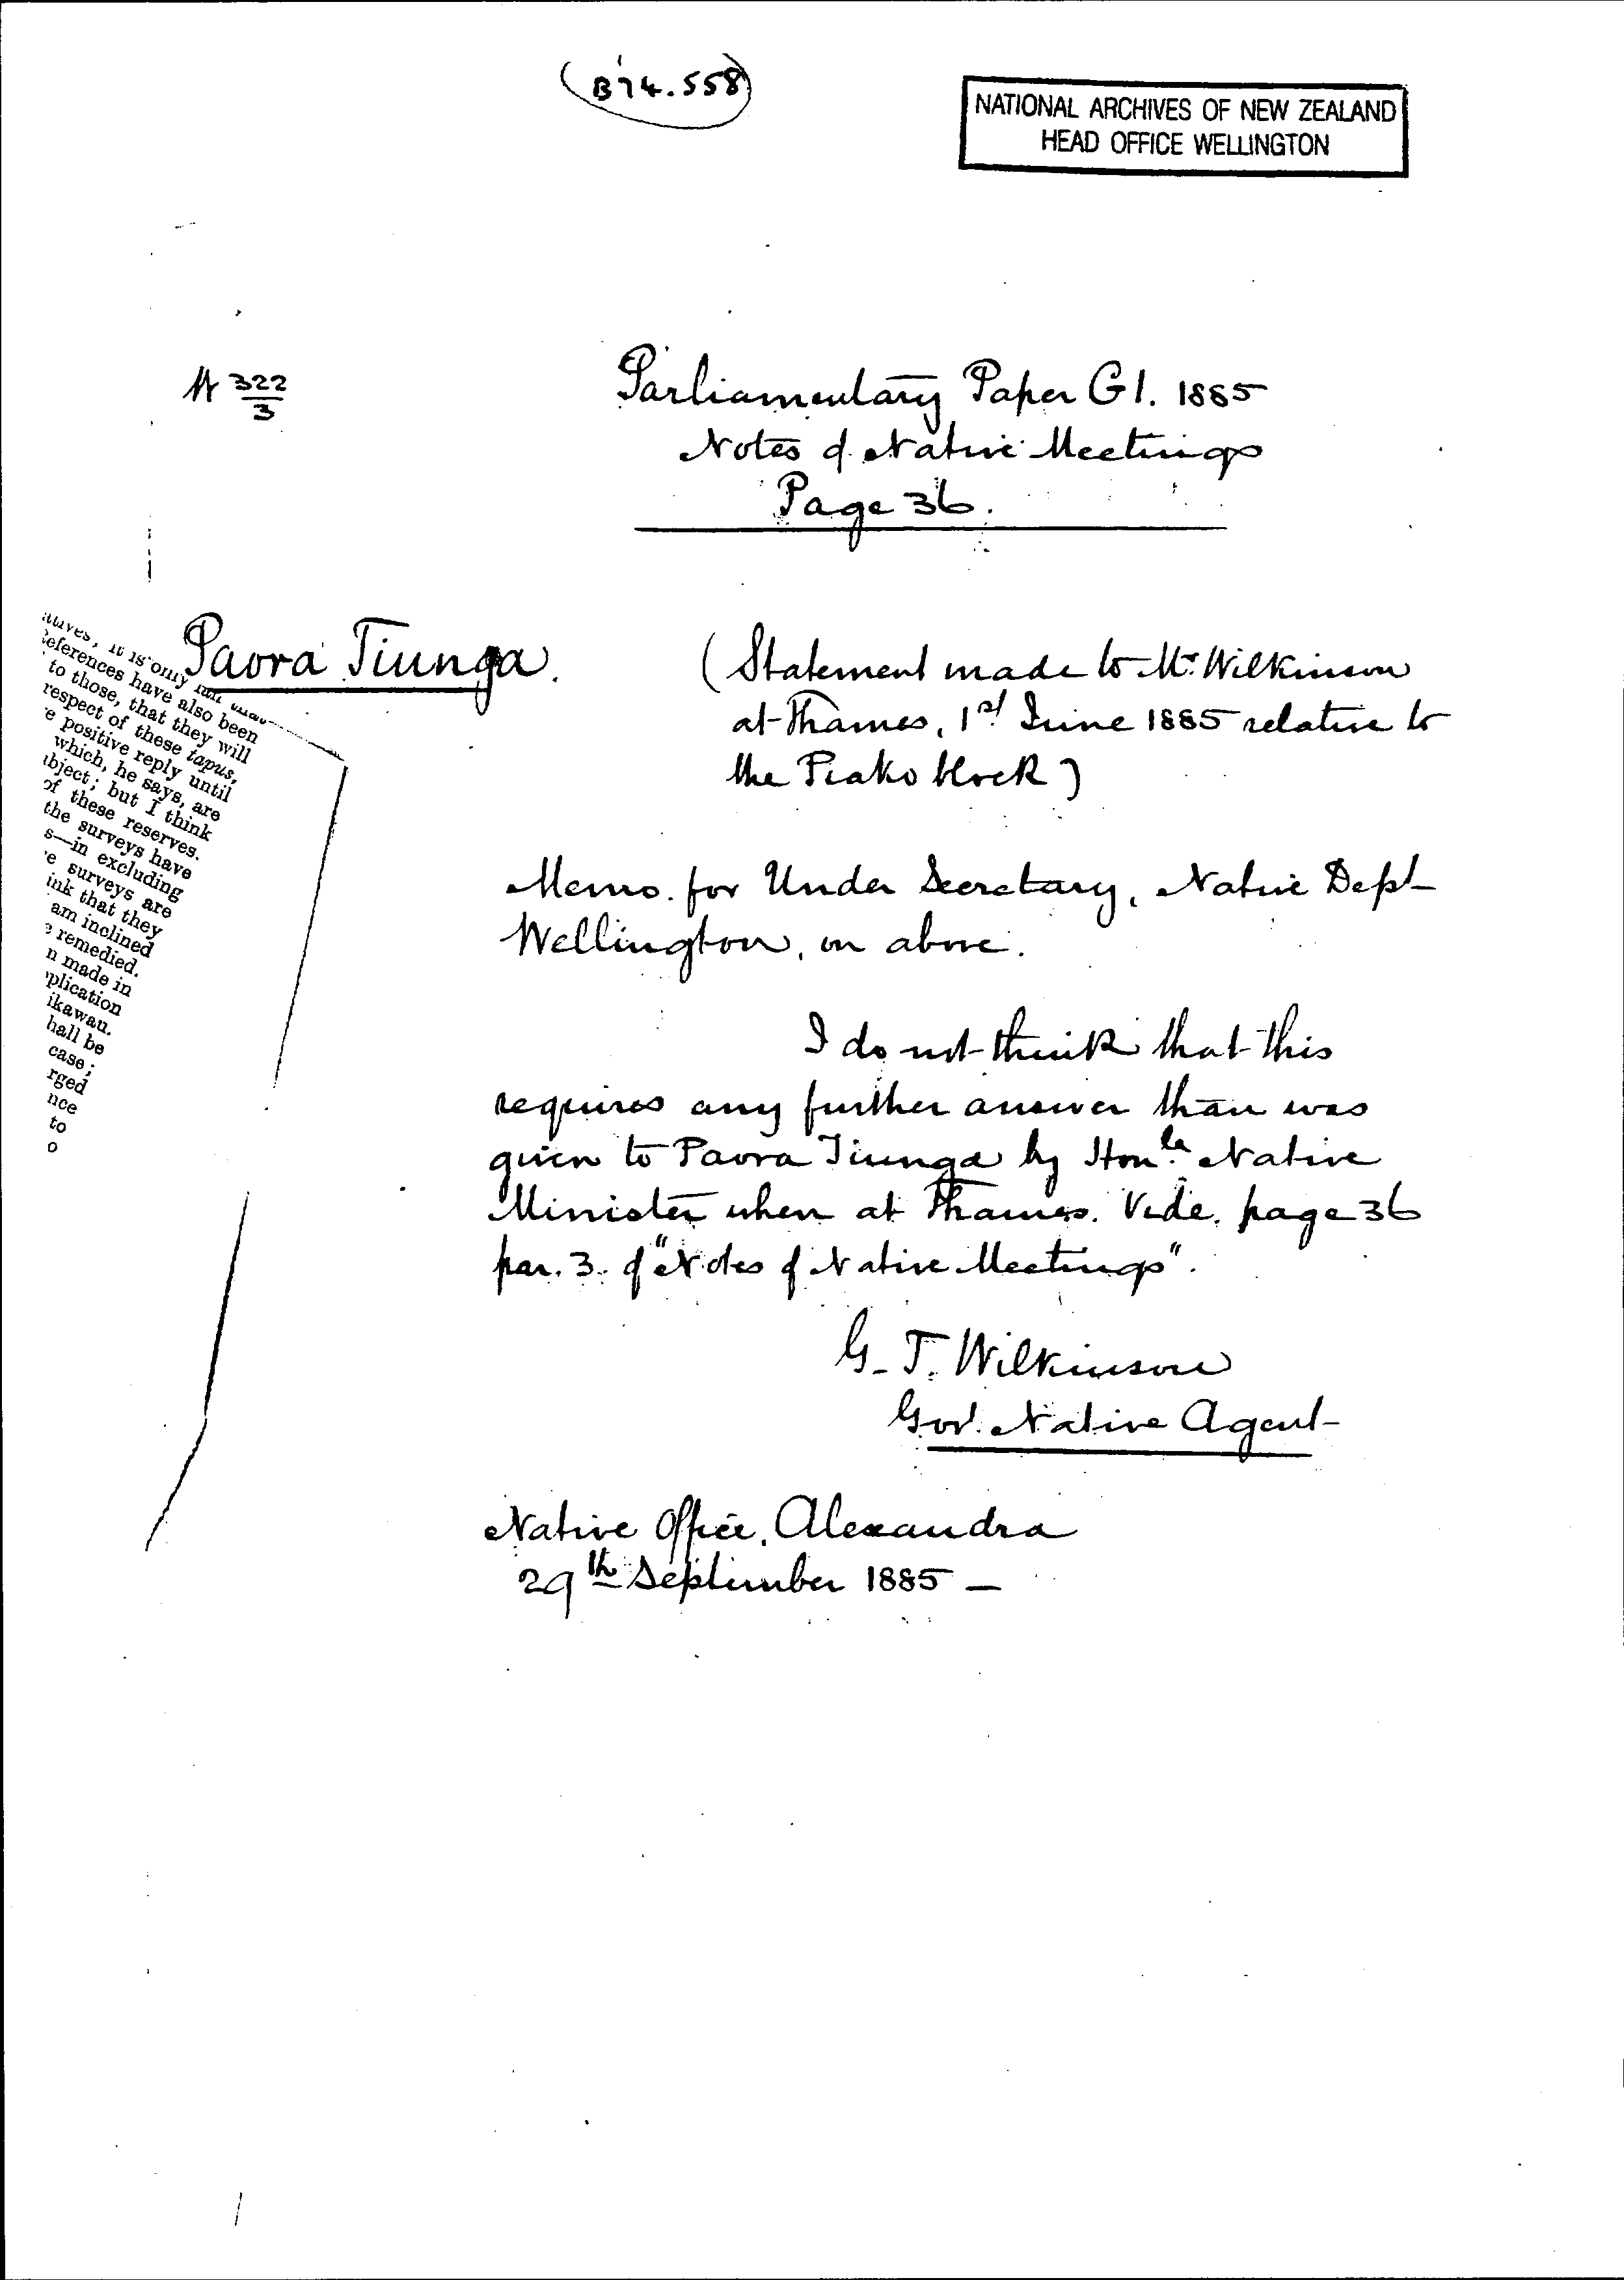 B74.558
NATIONAL ARCHIVES OF NEW ZEALAND
HEAD OFFICE WELLINGTON
322
3
Parliamentary Paper G1. 1885
Notes of Native Meetings
Page 36.
Paora Tiunga.
(Statement made to Mr. Wilkinson
at Thames, 1st June 1885 relative to
the Piako block)
Memo. for Under Secretary, Native Dept
Wellington, on above.
I do not think that this
requires any further answer than was
given to Paora Tiunga by Honble Native
Minister when at Thames. Vide. page 36
par. 3. of "Notes of Native Meetings".
G. T. Wilkinson
Gov. Native Agent
Native Office, Alexandra
29th September 1885 —
it is only
eferences have also been
to those, that they will
respect of these tapus,
e positive reply until
which, he says, are
bject; but I think
of these reserves.
the surveys have
s—in excluding
e surveys are
ink that they
am inclined
e remedied.
n made in
plication
ikawau.
hall be
case;
rged
nce
to
o